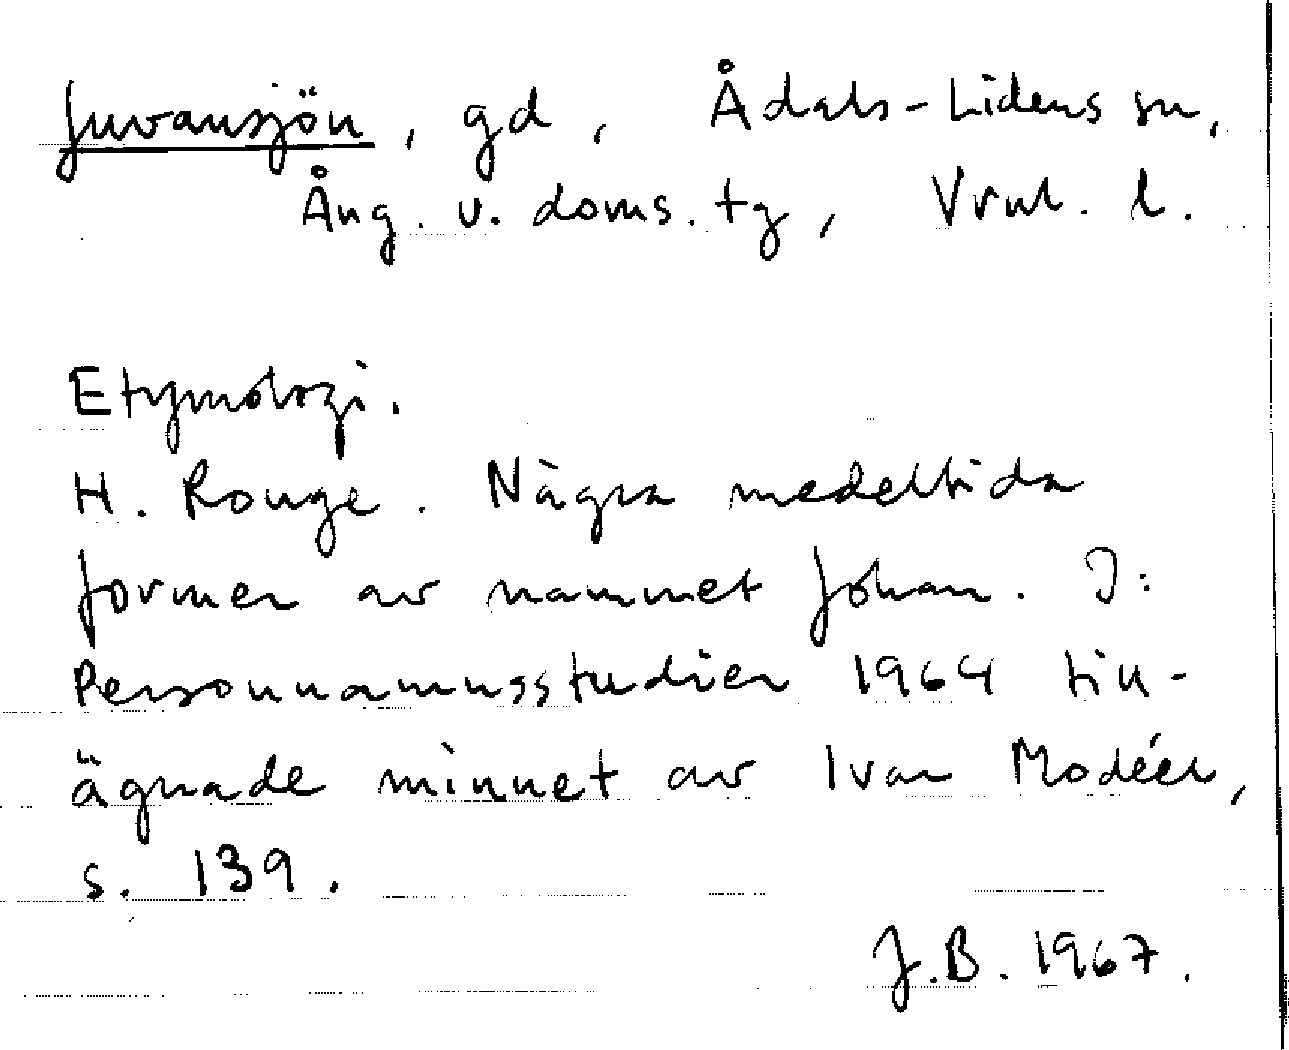 Juvansjön, gd, Ådals-Lidens sn,
Ång. v. doms. tg, Vrnl. l.
Etymologi.
H. Rouge. Några medeltida
former av namnet Johan. I:
Personnamnsstudier 1964 till-
ägnade minnet av Ivar Modéer,
s. 139.
J.B. 1967.